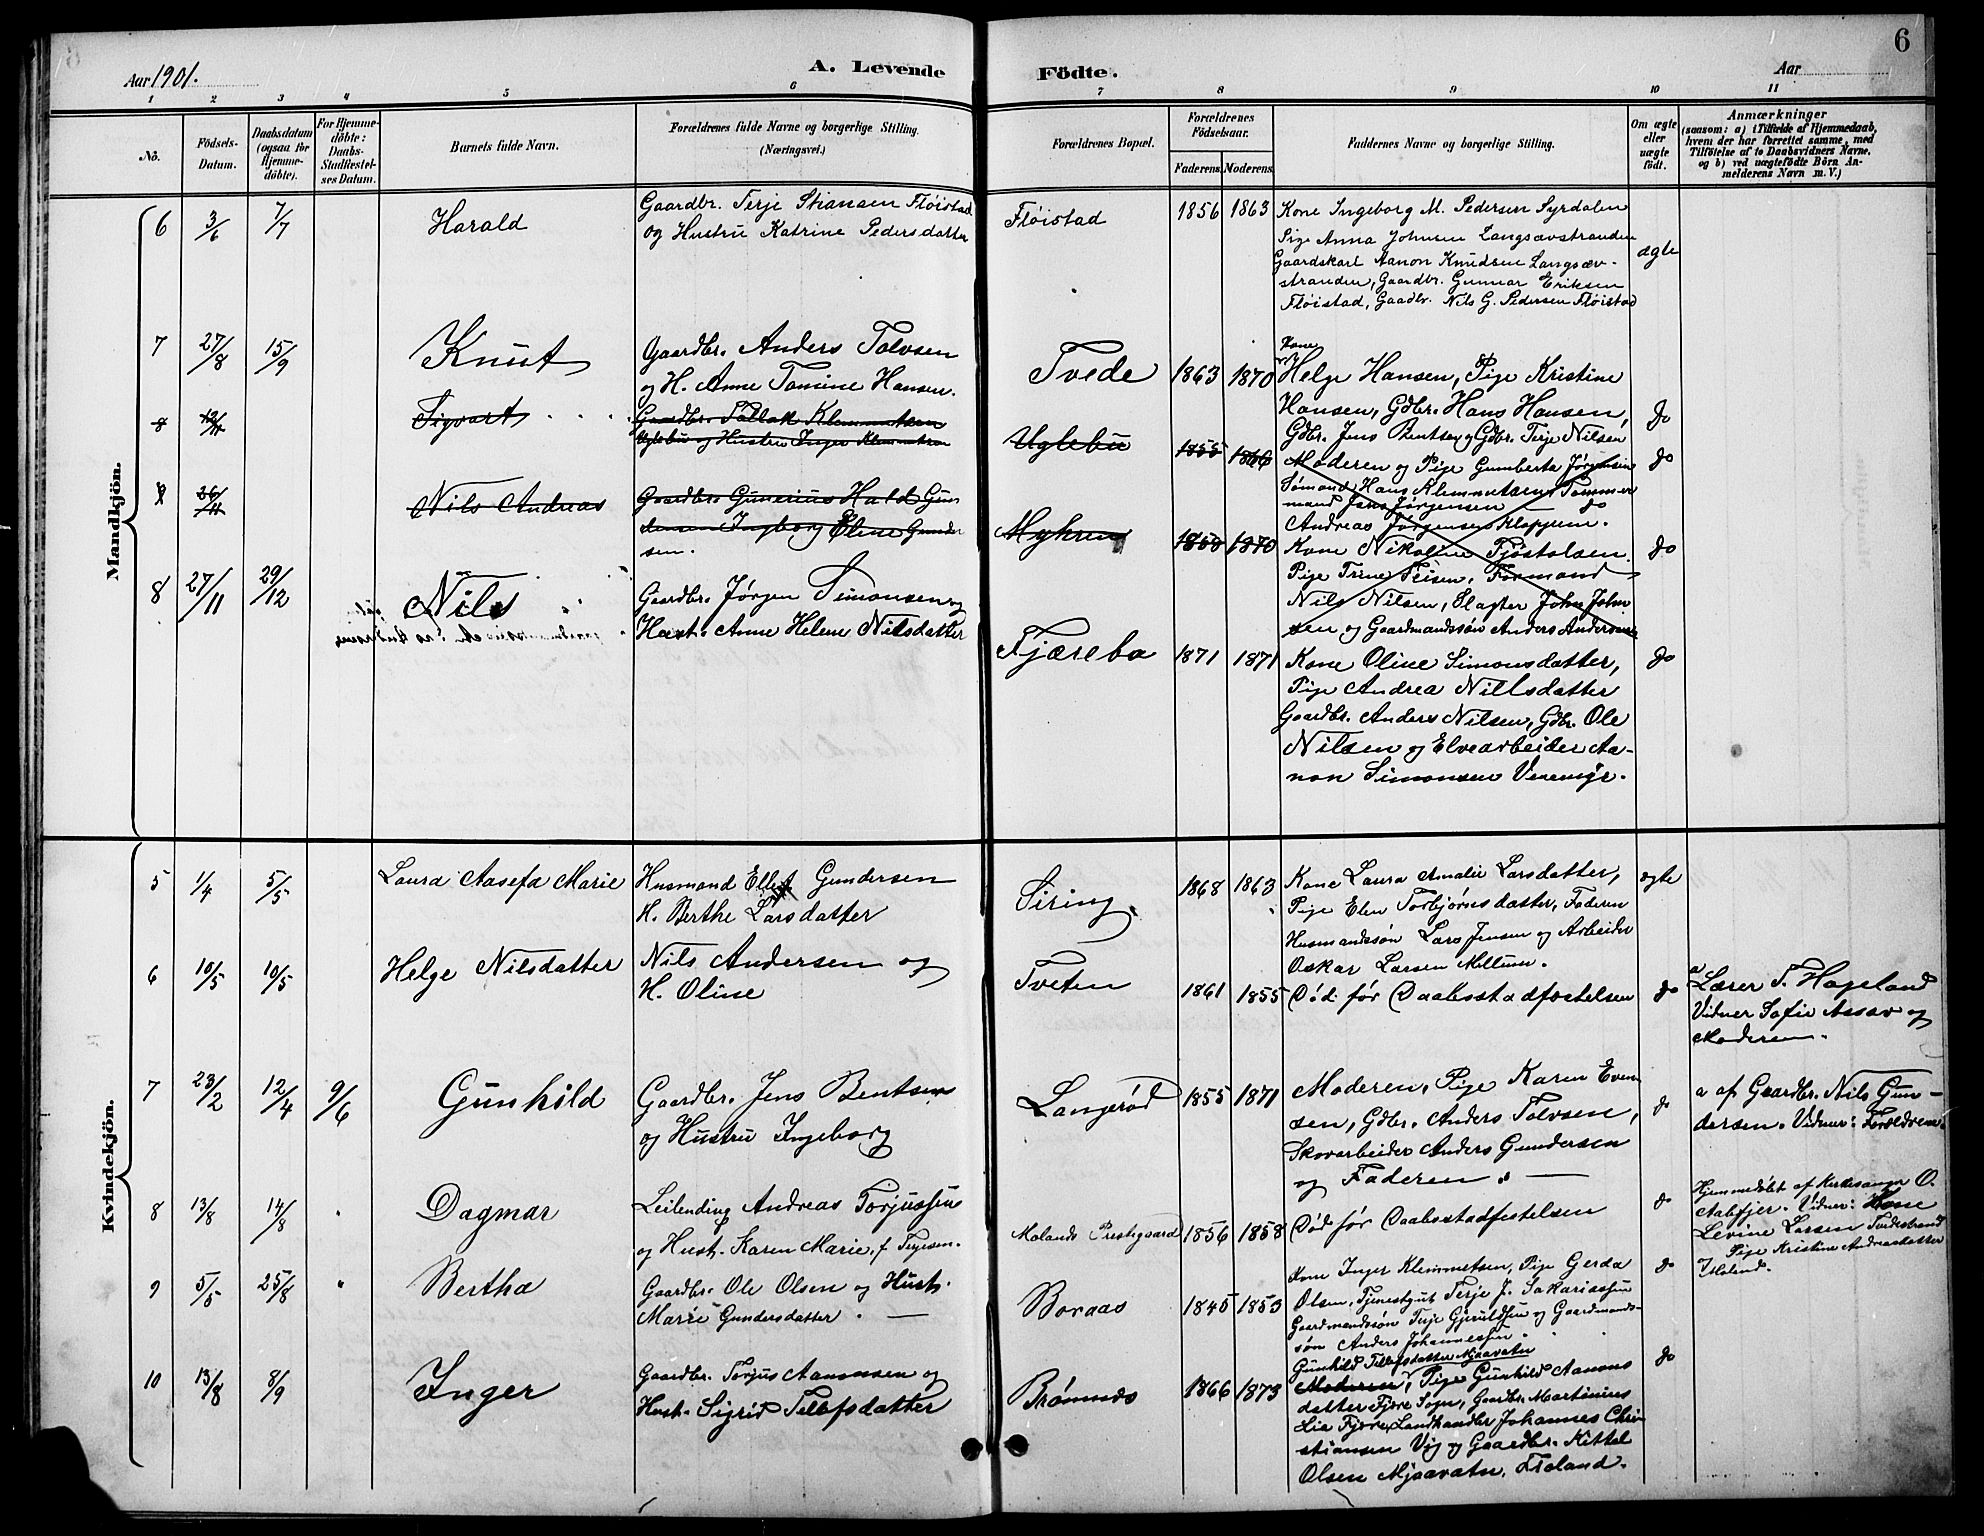 Aar 1901.
A. Levende
Födte.
Aar
6
1 2 3 4 5 6 7 8 9 10 11
No.
Födsels-
Datum.
Daabsdatum
(ogsaa for
Hjemme-
döbte).
For Hjemme-
döbte:
Daabs-
Stadfæstel-
ses Datum.
Barnets fulde Navn.
Forældrenes fulde Navne og borgerlige Stilling.
(Næringsvei.)
Forældrenes Bopæl.
Forældrenes
Födselsaar.
Faderens. Moderens.
Faddernes Navne og borgerlige Stilling.
Om ægte
eller
uægte
födt.
Anmærkninger
(saasom: a) i Tilfælde af Hjemmedaab,
hvem der har forrettet samme, med
Tilföielse af to Daabsvidners Navne,
og b) ved uægtefödte Börn An-
melderens Navn m. V.)
Mandkjön.
6 3/6 7/7 Harald
Gaardbr. Terje Stiansen Fløistad
og Hustru Katrine Pedersdatter
Fløistad 1856 1863
Kone Ingeborg M. Pedersen Syrdalen
Pige Anna Johnsen Langsævstranden
Gaardskarl Aanon Knudsen Langsæv-
stranden, Gaardbr. Gunnar Eriksen
Fløistad, Gaadbr. Nils G. Pedersen Fløistad
ægte
7 27/8 15/9 Knut
Gaardbr. Anders Tolvsen
og H. Anne Tomine Hansen.
Tvede 1863 1870
Kone
Helge Hansen, Pige Kristine
Hansen, Gdbr. Hans Hansen,
Gdbr. Jens Bentsen og Gdbr. Terje Nilsen
do
8 Sigvart
Gaardbr. Tallak Klemmetsen
Uglebu og Hustru Inger Klemmetsen
Uglebu 1855 1866
Moderen og Pige Gumberta Jørgensen
Sømand Hans Klemmetsen, Tømmer
mand Jens Jørgensen
Andreas Jørgensen Klappene.
do
8 26/11 Nils Andreas
Gaardbr. Gunerius Hald Gun
densen Ingborg Eline Gunder
sen.
Myhren 1850 1870
Kone Nikoline Fjøstolsen
Pige Trine Teisen, Formand
Nils Nilsen, Slagter John John
sen og Gaardmandssøn Anders Andersen
do
8 27/11 29/12 Nils
Gaardbr. Jørgen Simonsen og
Hust. Anne Helene Nilsdatter
Fjærebo 1871 1871
Kone Oline Simonsdatter,
Pige Andrea Nillsdatter
Gaardbr. Anders Nilsen, Gdbr. Ole
Nilsen og Elvearbeider Aa-
non Simonsen Vevemyr.
do
Kvindekjön.
5 1/4 5/5 Laura Aasefa Marie
Husmand Ellef Gundersen
H. Berthe Larsdatter
Siring 1868 1863
Kone Laura Amalie Larsdatter,
Pige Elen Torbjørnsdatter, Faderen
Husmandssøn Lars Jensen og Arbeider
Oskar Larsen Mellum.
ægte
6 10/5 10/5 Helge Nilsdatter
Nils Andersen og
H. Oline
Tveten 1861 1855
Død før Daabsstadfæstelsen
do
a Lærer T. Hageland
Vidner Sofie Assav og
Moderen.
7 23/2 12/4 9/6 Gunhild
Gaardbr. Jens Bentsen
og Hustru Ingeborg
Langerød 1855 1871
Moderen, Pige Karen Even
sen, Gdbr. Anders Tolvsen,
Skovarbeider Anders Gundersen
og Faderen.
do
a af Gaardbr. Nils Gun-
dersen. Vidner: Forældrene.
8 13/8 14/8 " Dagmar
Leilending Andreas Torjussen
og Hust. Karen Marie, f. Terjesen.
Molands Prestegaard 1856 1858
Død før Daabsstadfestelsen
do
Hjemmedøbt af Kirkesanger O.
Aabfjer. Vidner: Kone
Levine Larsen Tvedestrand
og Pige Kristine Andreasdatter
Moland.
9 5/5 25/8 " Bertha
Gaardbr. Ole Olsen og Hust.
Marie Gundersdatter.
Boraas 1845 1853
Kone Inger Klemmetsen, Pige Gerda
Olsen, Tjenestgut Terje J. Sakariassen
Gaardmandssøn Terje Gjeruldsen og Gaardmands-
søn Anders Johannessen
do
10 13/8 8/9 Inger
Gaardbr. Torjus Aanonsen og
Hust. Sigrid Tellefsdatter
Brømnes 1866 1873
Gunhild Tellefsdatter Mjaavatn
Moderen, Pige Gunhild Aanons
datter Fjære Sogn, Gaardbr. Martinius
Lia Fjære, Landhandler Johannes Chri-
stiansen Vig og Gaardbr. Kittel
Olsen Mjaavatn, Froland.
do